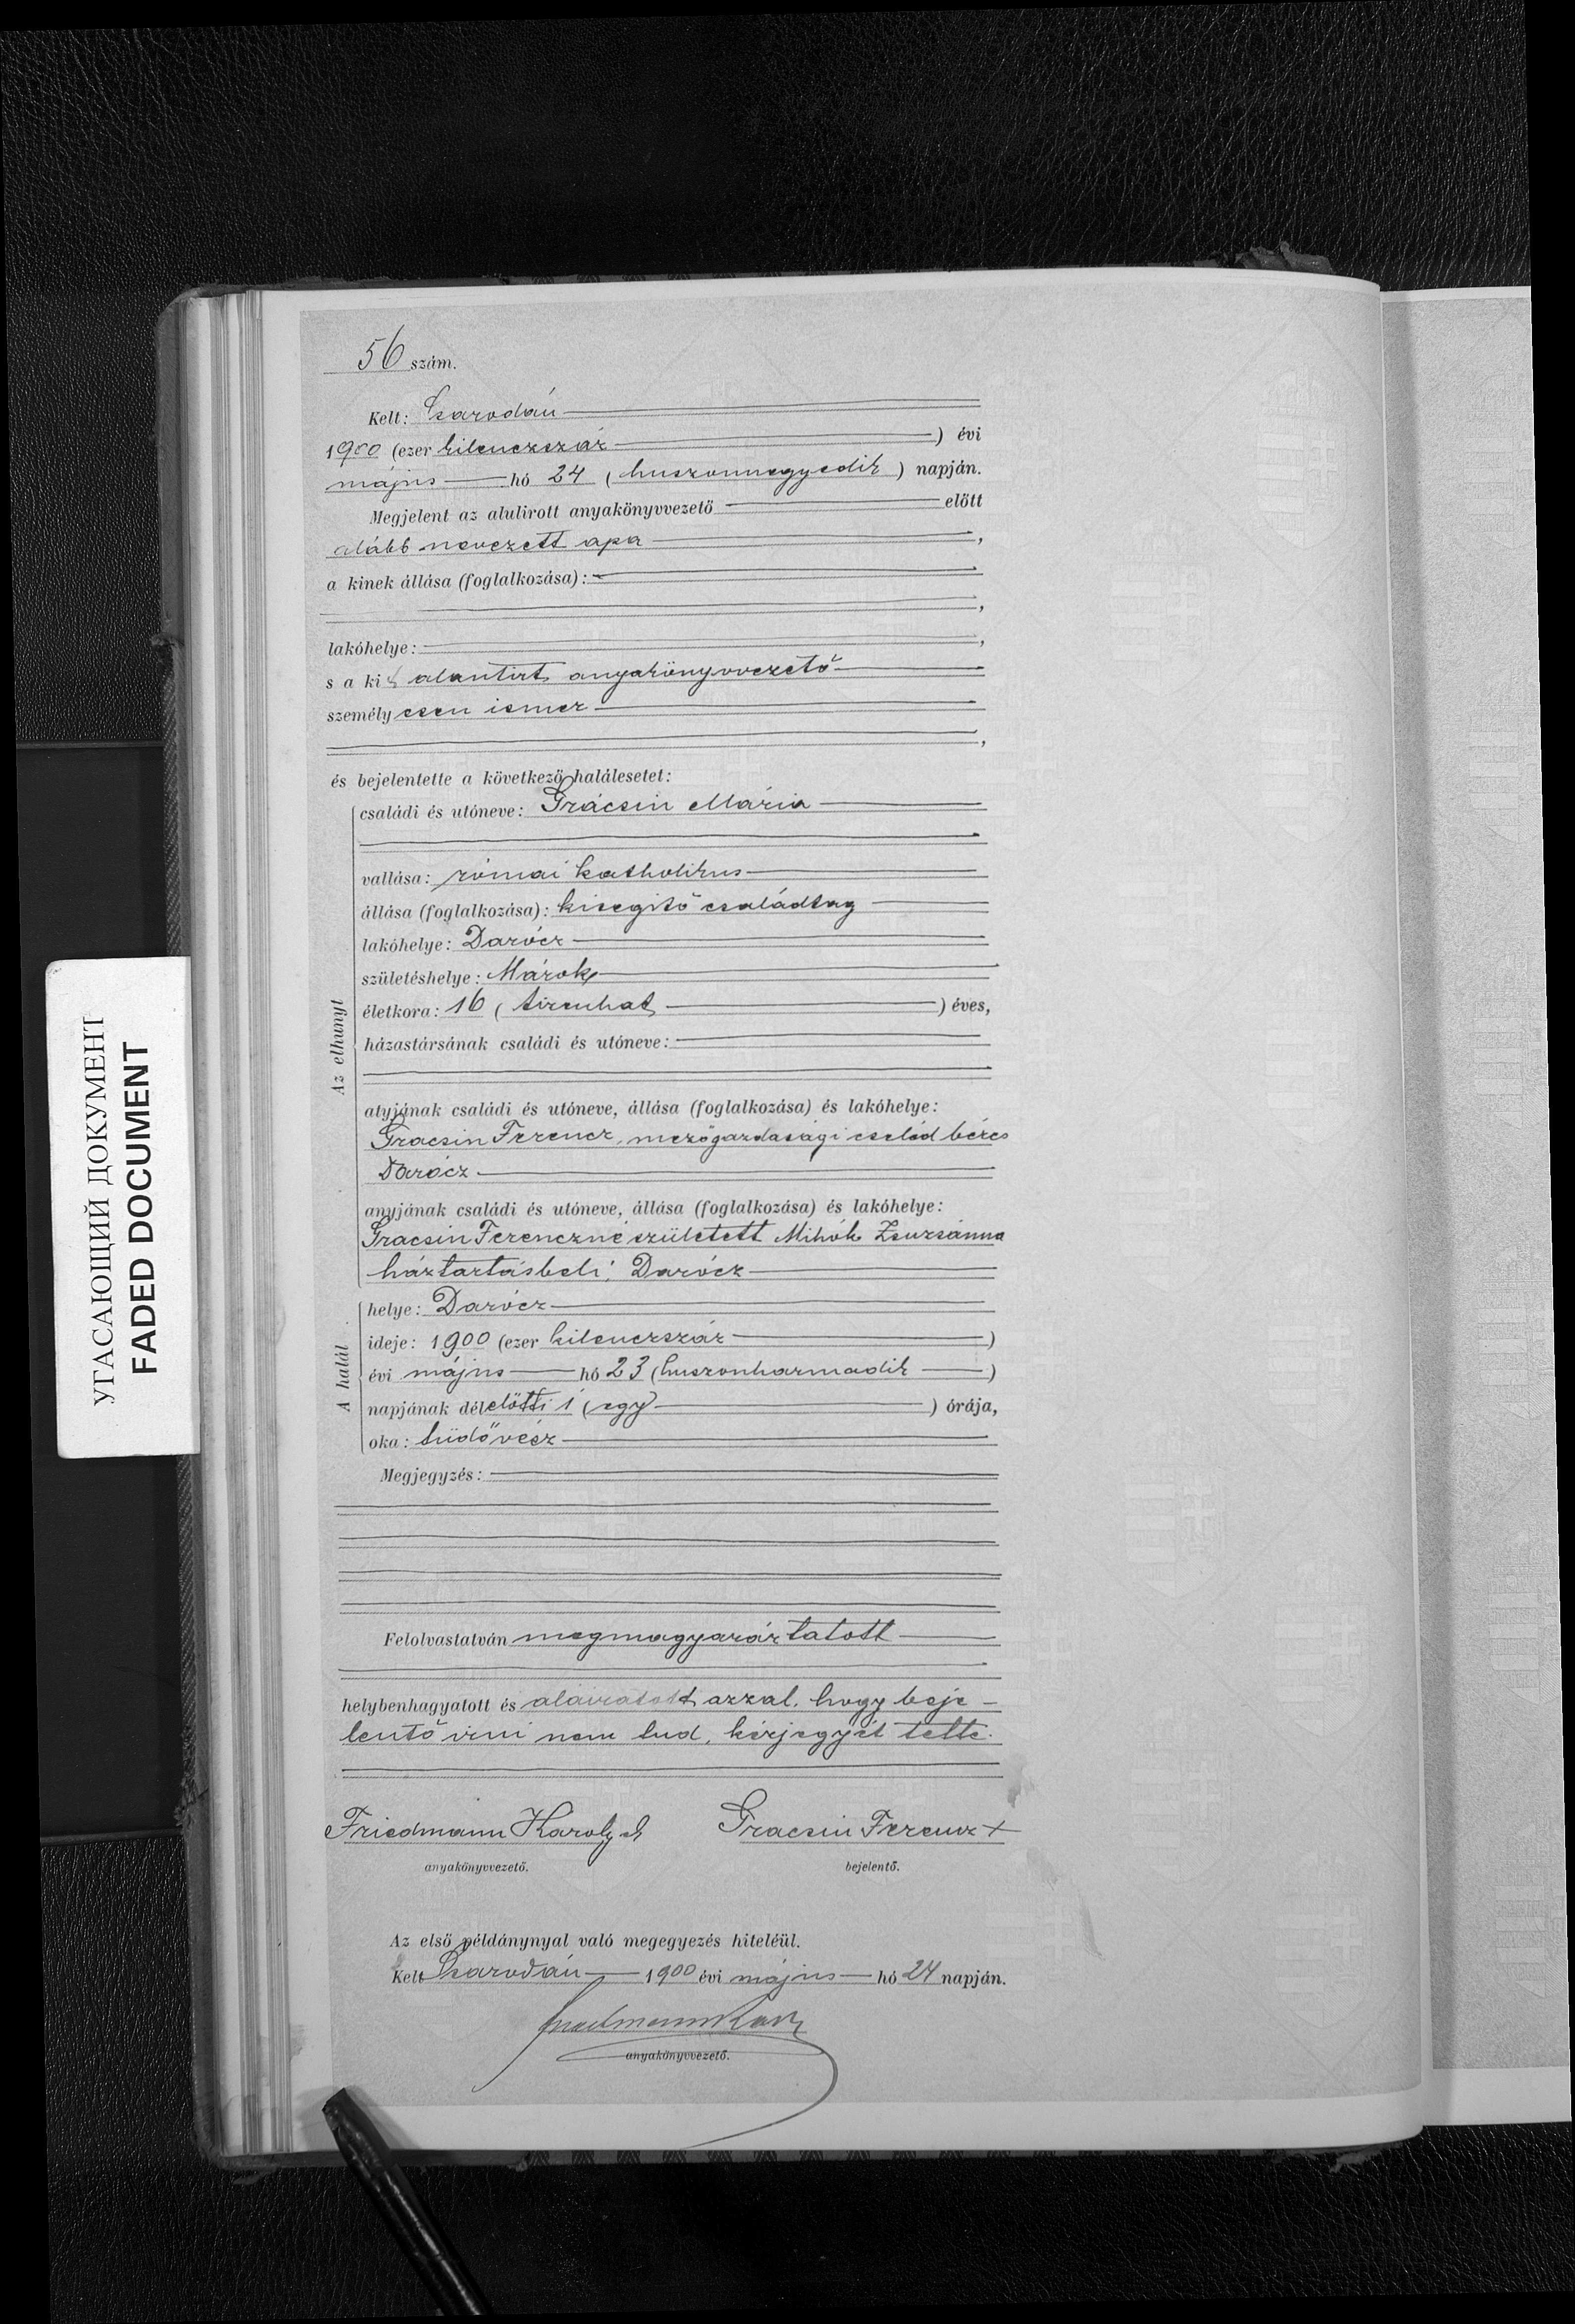 УГАСАЮЩИЙ ДОКУМЕНТ
FADED DOCUMENT
56 szám.
Kelt: Csarodán
1900 (ezer kilenczszáz) évi
május hó 24 (huszonnegyedik) napján.
Megjelent az alulirott anyakönyvvezető előtt
alább nevezett apa,
a kinek állása (foglalkozása):
,
lakóhelye: ,
s a kit alantirt anyakönyvvezető
személyesen ismer
,
és bejelentette a következő halálesetet:
Az elhunyt
családi és utóneve: Grácsin Mária
vallása: római katholikus
állása (foglalkozása): kisegitő családtag
lakóhelye: Darócz
születéshelye: Márok
életkora: 16 (tizenhat) éves,
házastársának családi és utóneve:
atyjának családi és utóneve, állása (foglalkozása) és lakóhelye:
Gracsin Ferencz, mezőgazdasági cseléd béres
Darócz
anyjának családi és utóneve, állása (foglalkozása) és lakóhelye:
Gracsin Ferenczné született Mihók Zsuzsánna
háztartásbeli, Darócz
A halál
helye: Darócz
ideje: 1900 (ezer kilenczszáz)
évi május hó 23 (huszonharmadik)
napjának délelőtti 1 (egy) órája,
oka: tüdővész
Megjegyzés:
Felolvastatván megmagyaráztatott
helybenhagyatott és aláiratott azzal, hogy beje-
lentő irni nem tud, kézjegyét tette.
Friedmann Károly Gracsin Ferencz +
anyakönyvvezető. bejelentő.
Az első példánynyal való megegyezés hiteléül.
Kelt Csarodán 1900 évi május hó 24 napján.
Friedmann Károly
anyakönyvvezető.